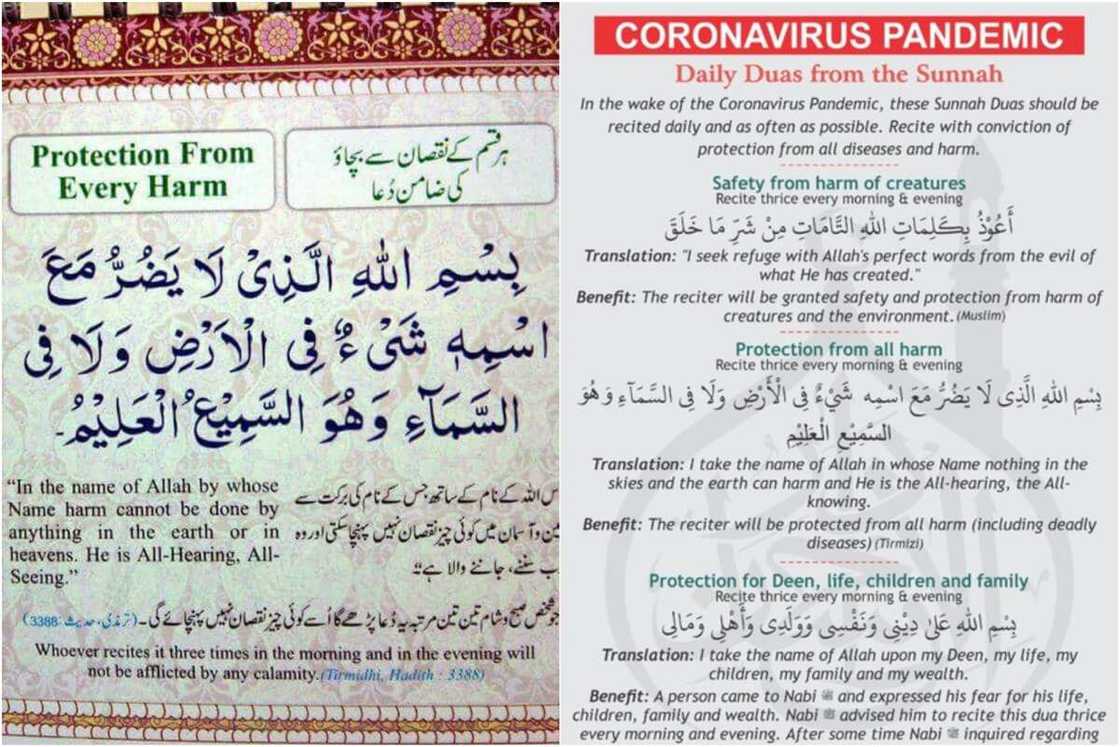 Protection From
Every Harm
ہر قسم کے نقصان سے بچاؤ
کی ضامن دُعا
بِسْمِ اللهِ الَّذِىْ لَا يَضُرُّ مَعَ
اسْمِهٖ شَىْءٌ فِى الْاَرْضِ وَلَا فِى
السَّمَآءِ وَهُوَ السَّمِيْعُ الْعَلِيْمُ۔
“In the name of Allah by whose
Name harm cannot be done by
anything in the earth or in
heavens. He is All-Hearing, All-
Seeing.”
اللہ کے نام کے ساتھ، جس کے نام کی برکت سے
وآسمان میں کوئی چیز نقصان نہیں پہنچا سکتی اور وہ
سننے، جاننے والا ہے“۔
جو شخص صبح وشام تین تین مرتبہ یہ دُعا پڑھے گا اُسے کوئی چیز نقصان نہیں پہنچائے گی۔ (ترمذی، حدیث: 3388)
Whoever recites it three times in the morning and in the evening will
not be afflicted by any calamity.(Tirmidhi, Hadith : 3388)
CORONAVIRUS PANDEMIC
Daily Duas from the Sunnah
In the wake of the Coronavirus Pandemic, these Sunnah Duas should be
recited daily and as often as possible. Recite with conviction of
protection from all diseases and harm.
Safety from harm of creatures
Recite thrice every morning & evening
أَعُوْذُ بِكَلِمَاتِ اللهِ التَّامَاتِ مِنْ شَرِّ مَا خَلَقَ
Translation: "I seek refuge with Allah's perfect words from the evil of
what He has created."
Benefit: The reciter will be granted safety and protection from harm of
creatures and the environment.(Muslim)
Protection from all harm
Recite thrice every morning & evening
بِسْمِ اللهِ الَّذِى لَا يَضُرُّ مَعَ اسْمِهٖ شَيْءٌ فِى الْأَرْضِ وَلَا فِى السَّمَآءِ وَهُوَ
السَّمِيْعِ الْعَلِيْمِ
Translation: I take the name of Allah in whose Name nothing in the
skies and the earth can harm and He is the All-hearing, the All-
knowing.
Benefit: The reciter will be protected from all harm (including deadly
diseases) (Tirmizi)
Protection for Deen, life, children and family
Recite thrice every morning & evening
بِسْمِ اللهِ عَلىٰ دِيْنِى وَنَفْسِى وَوَلَدِى وَأَهْلِى وَمَالِى
Translation: I take the name of Allah upon my Deen, my life, my
children, my family and my wealth.
Benefit: A person came to Nabi ﷺ and expressed his fear for his life,
children, family and wealth. Nabi ﷺ advised him to recite this dua thrice
every morning and evening. After some time Nabi ﷺ inquired regarding